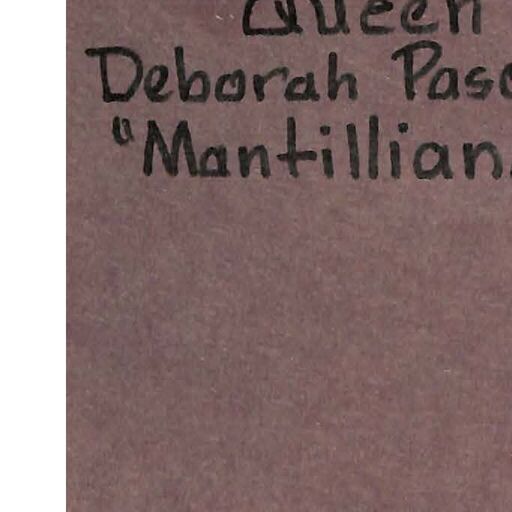 Queen
Deborah Pasc
"Mantillian